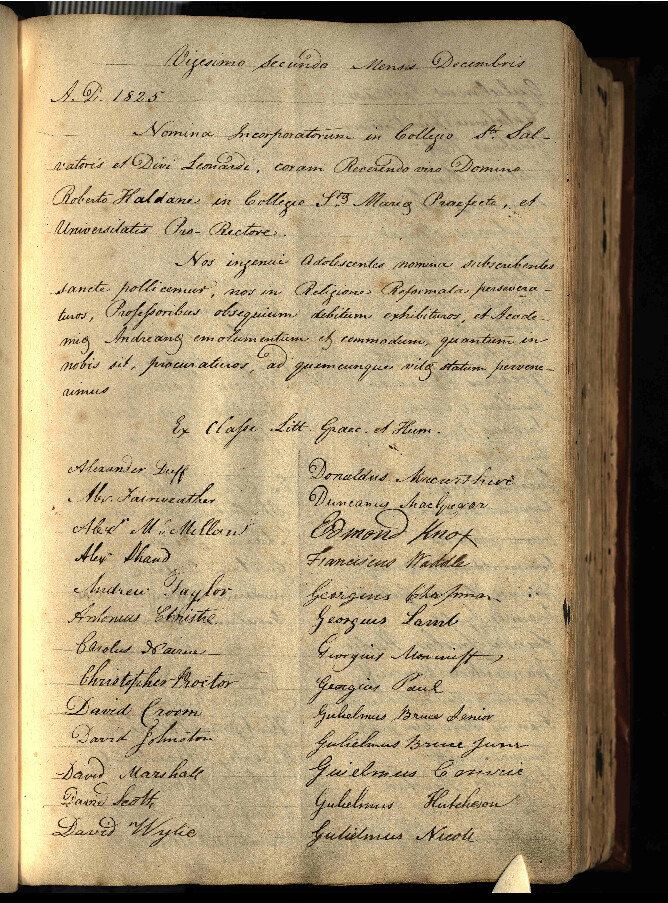 Vigesimo Secundo Mensis Decembris
A.D. 1825
Nomina Incorporatorum in Collegio Sti. Sal-
vatoris et Divi Leonardi, coram Reverendo viro Domino
Roberto Haldane in Collegio Stæ Mariæ Praefecto, et
Universitatis Pro-Rectore.
Nos ingenui Adolescentes nomina subscribentes
sancte pollicemur, nos in Religione Reformata persevera-
turos, Professoribus obsequium debitum exhibituros, et Acade-
miæ Andreanæ emolumentum et commodum, quantum in
nobis sit, procuraturos, ad quemcunque vitæ statum pervene-
rimus
Ex Classe Litt. Graec. et Hum.
Alexander Duff
Alex. Fairweather
Alexr McMillan
Alex Shand
Andrew Taylor
Antonius Christie
Carolus Nairne
Christopher Proctor
David Croom
David Johnston
David Marshall
David Scott
David Wylie
Donaldus
Duncanus MacGregor
Edmond Knox
Franciscus Waddle
Georgius Chapman
Georgius Lamb
Georgius Moncrieff
Georgius Paul
Gulielmus Bruce Senior
Gulielmus Bruce Junr
Guielmus
Gulielmus Hutcheson
Gulielmus Nicoll